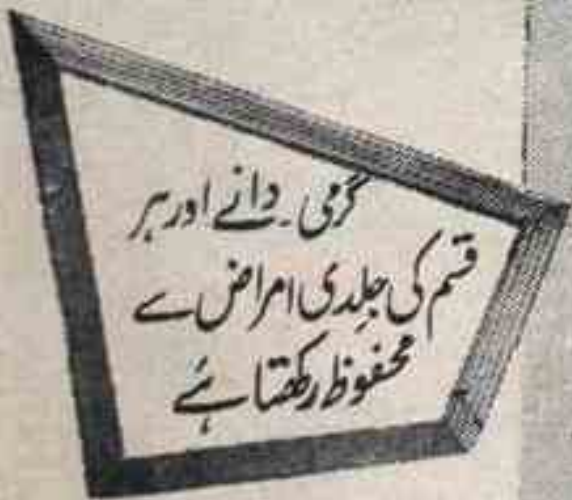 گرمی ۔ دانے اور ہر
قسم کی جِلدی امراض سے
محفوظ رکھتا ہے